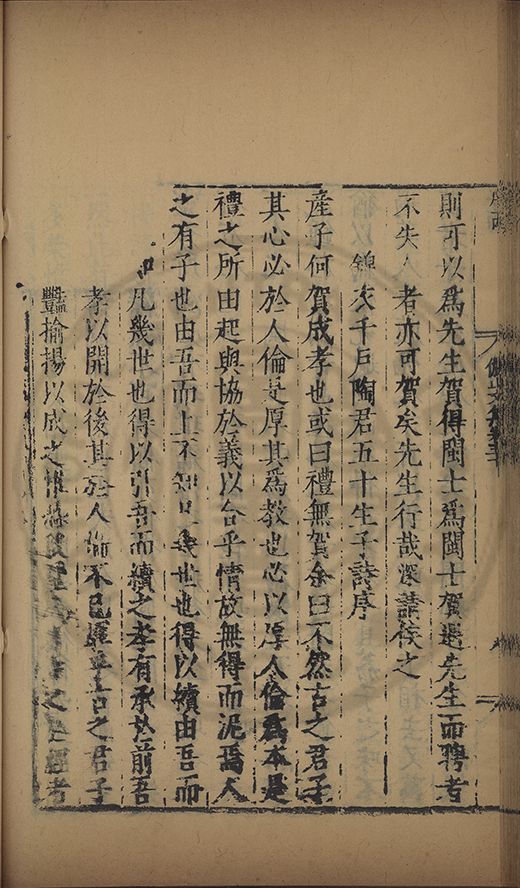 則可以爲先生賀得閩士爲閩士賀遇先生而聘考
不失人者亦可賀矣先生行哉深諸俟之
錦衣千戶陶君五十生子詩序
産子何賀成孝也或曰禮無賀余曰不然古之君子
其心必於人倫是厚其爲教也必以厚人倫爲本是
禮之所由起與協於義以合乎情故無得而泥焉人
之有子也由吾而上不知凡幾世也得以續由吾而
凡幾世也得以引吾而續之孝有承於前吾
孝以開於後其於人倫不已厚乎古之君子
豔揄揚以成之